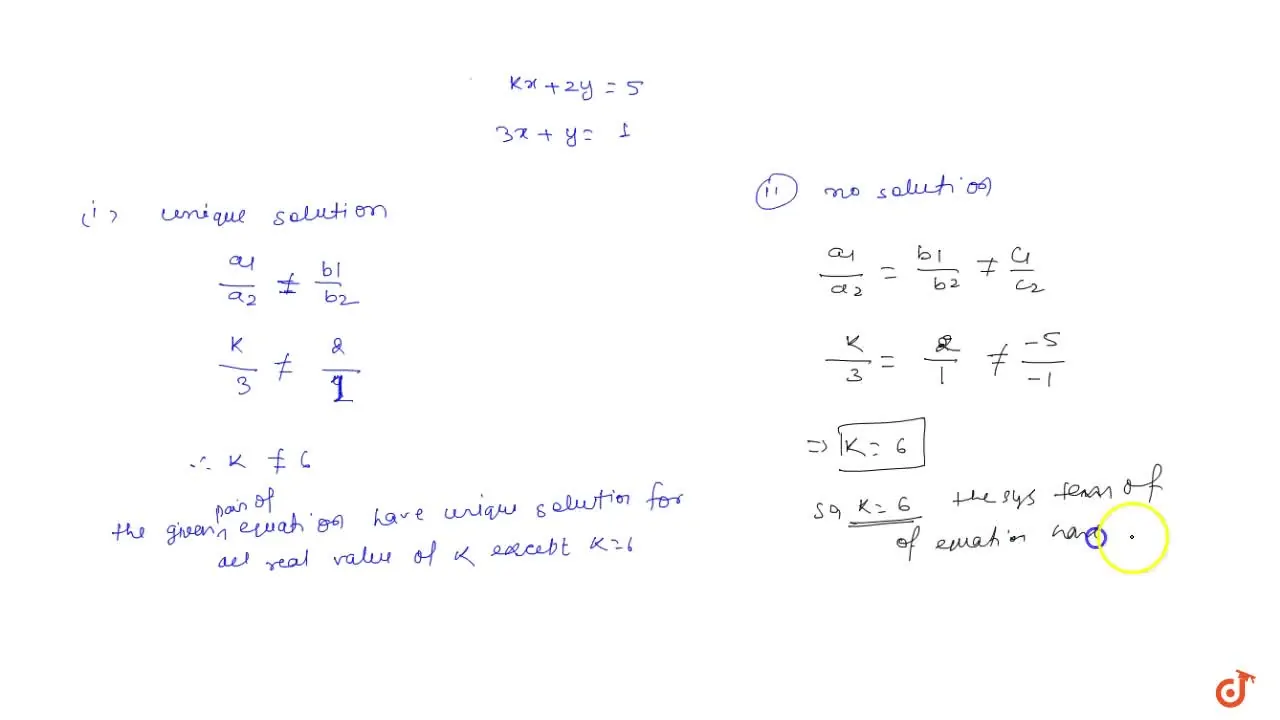 kx + 2y = 5
3x + y = 1
(i) unique solution
a1/a2 ≠ b1/b2
k/3 ≠ 2/1
∴ k ≠ 6
pair of
the given equation have unique solution for
all real value of k except k=6
(ii) no solution
a1/a2 = b1/b2 ≠ c1/c2
k/3 = 2/1 ≠ -5/-1
⇒ k = 6
so k = 6 the system of
of equation have